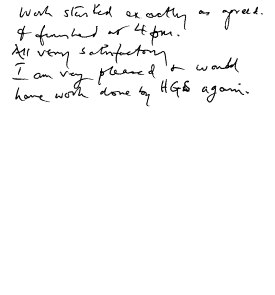 Work started exactly as agreed.
& finished at 4pm.
All very satisfactory
I am very pleased & would
have work done by HGS again.